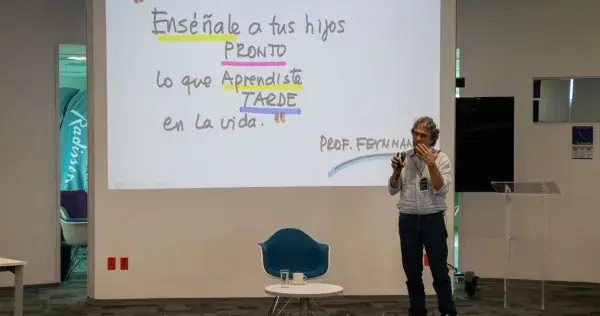 "
Enséñale a tus hijos
PRONTO
lo que Aprendiste
TARDE
en la vida. "
PROF. FEYNMAN
Radisson